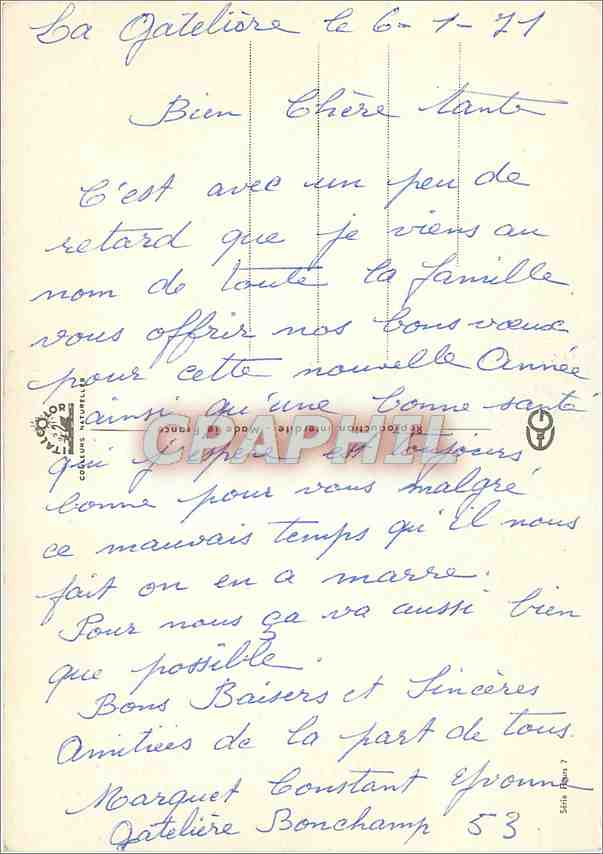 La Gatelière le 6-1-71
Bien Chère tante
C'est avec un peu de
retard que je viens au
nom de toute la famille
vous offrir nos bons vœux
pour cette nouvelle Année
ainsi qu'une bonne santé
qui j'éspère est toujours
bonne pour vous malgré
ce mauvais temps qu'il nous
fait on en a marre.
Pour nous ça va aussi bien
que possible.
Bons Baisers et Sincères
Amitiées de la part de tous.
Marquet Constant Yvonne
Gatelière Bonchamp 53
COULEURS NATURELLES
Reproduction interdite - Made in France
CPAPHIL
Série Fleurs 7